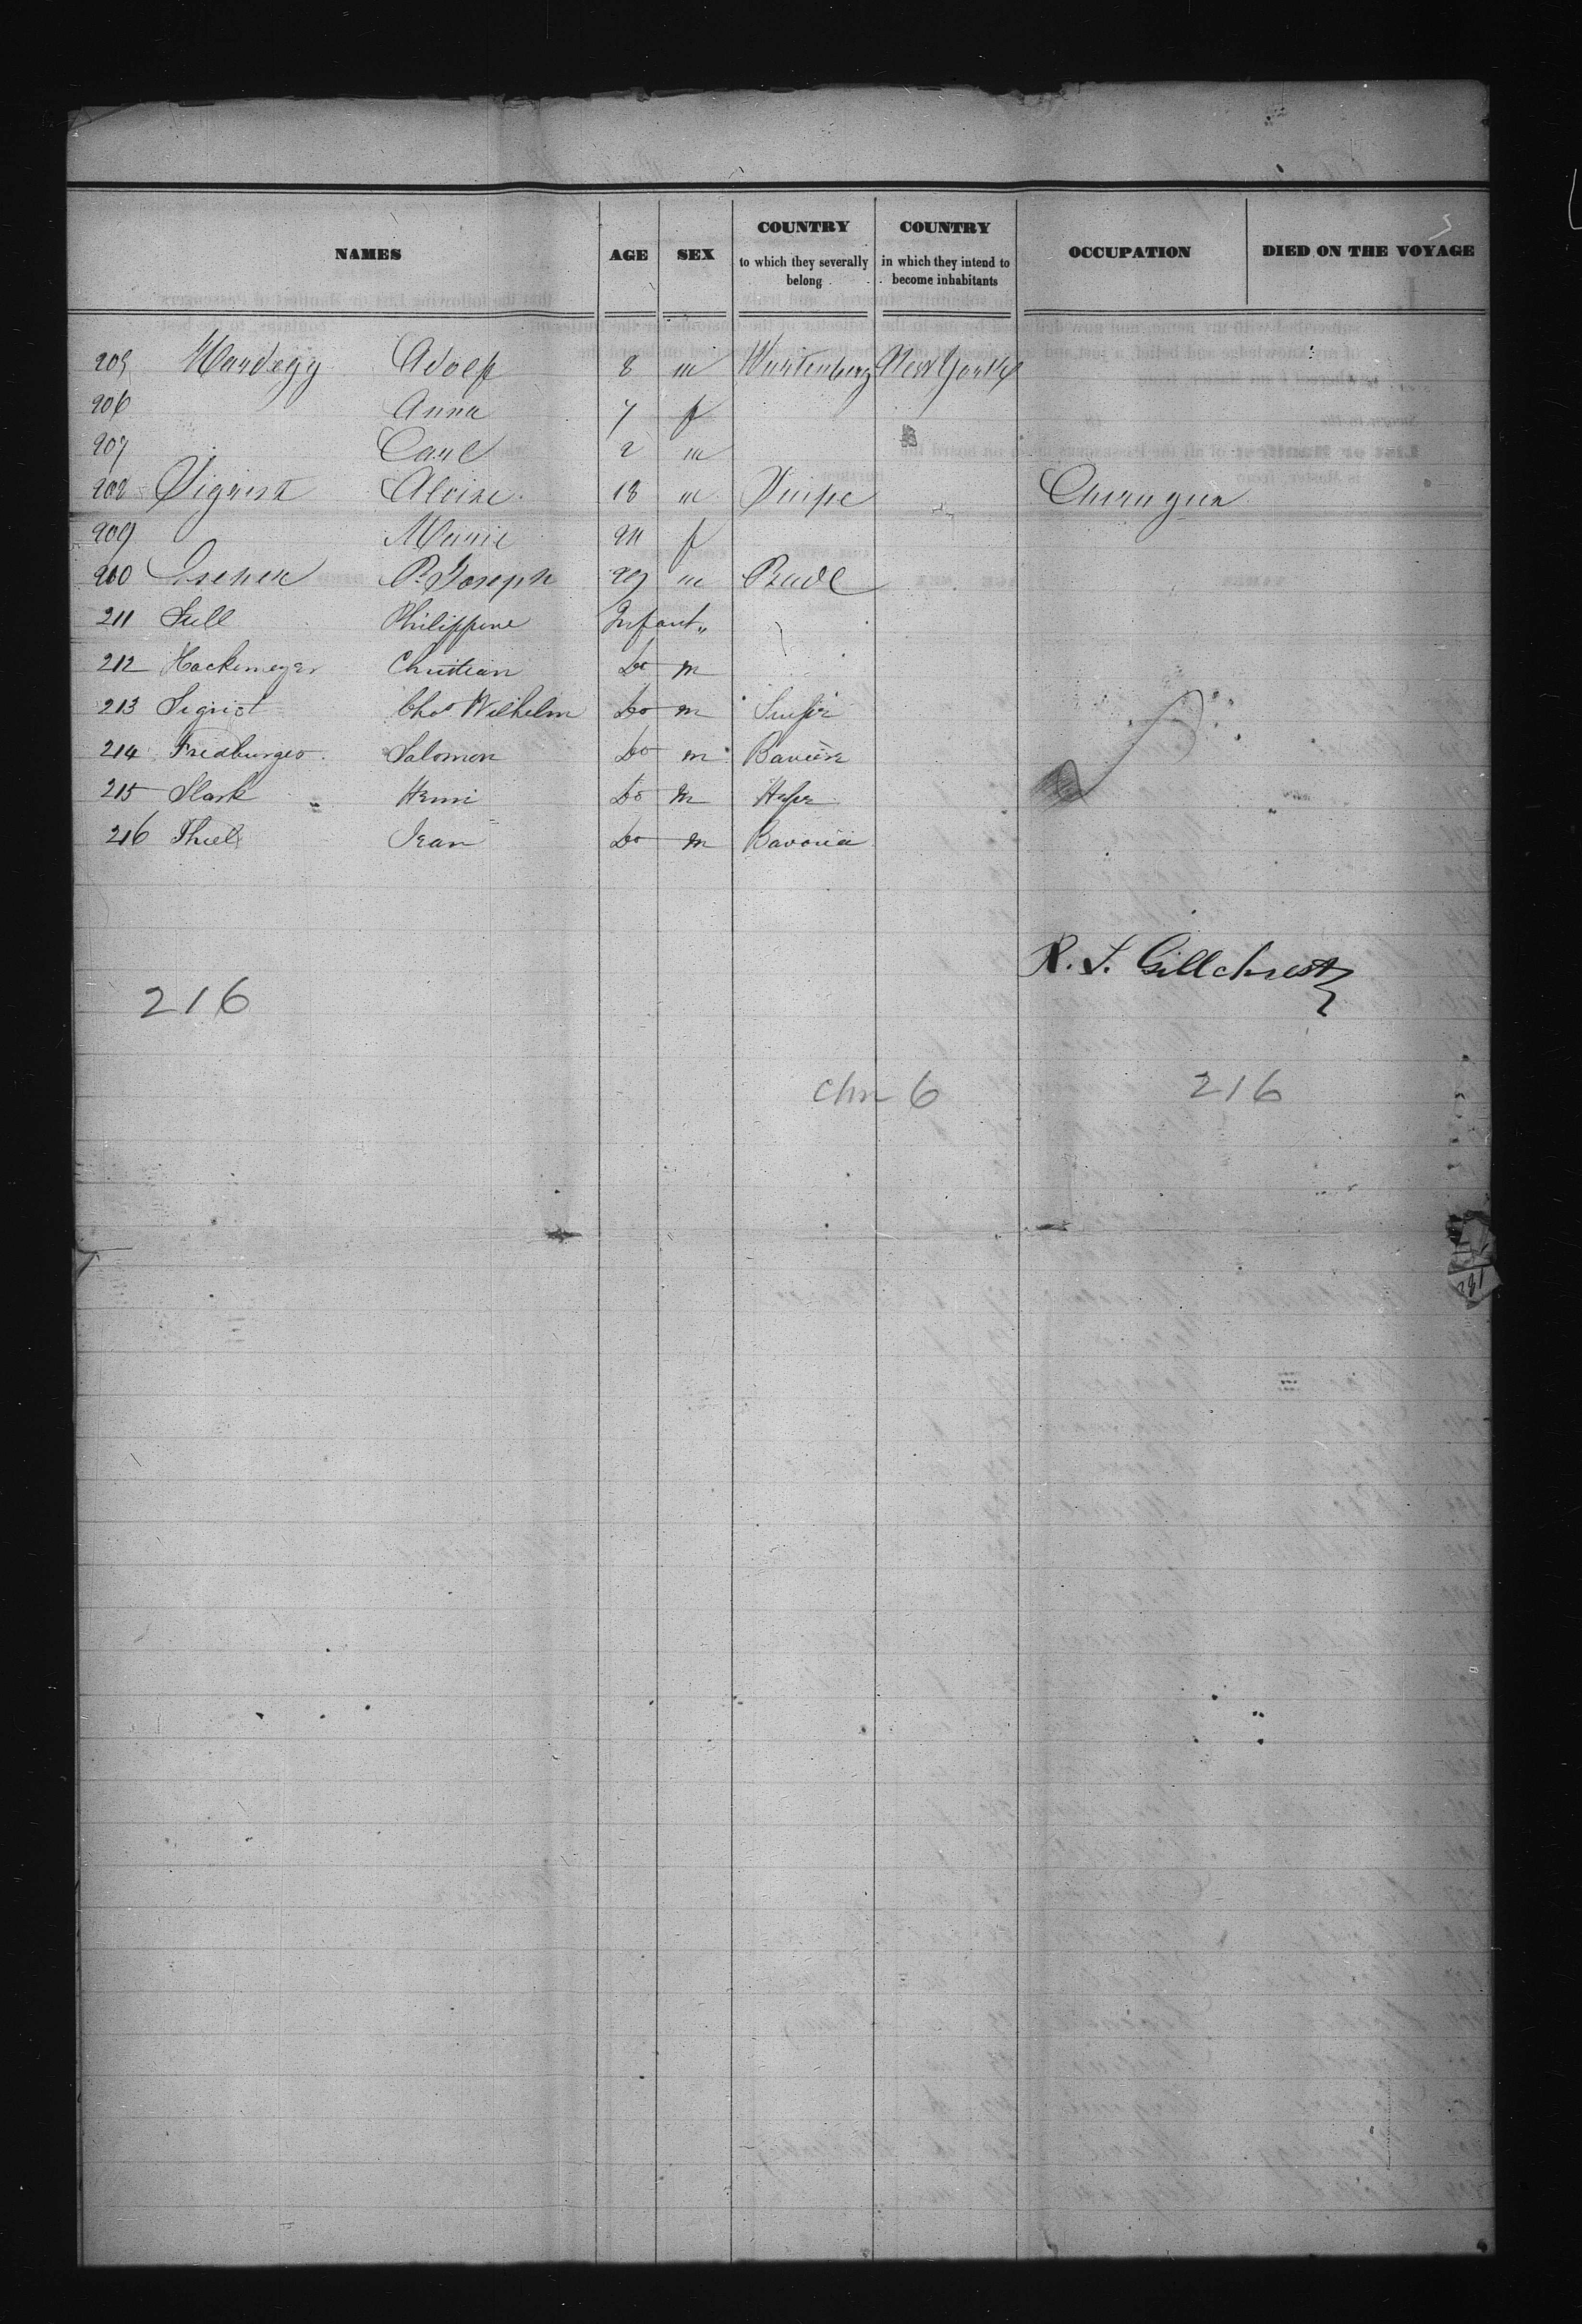 NAMES AGE SEX COUNTRY to which they severally belong COUNTRY in which they intend to become inhabitants OCCUPATION DIED ON THE VOYAGE
205 Mardegg Adolp 8 m Wurtemberg New York
206 Anna 7 f
207 Carl 2 m
208 Sigrist m Suisse
209 Marie f
210 P. Joseph 29 m Bade
211 Sull Philippine Infant
212 Hackemeyer Christian Do m
213 Sigrist Chas Wilhelm Do m Suisse
214 Fredburger Salomon Do m Baviere
215 Stark Henri Do m Hesse
216 Thiel Jean Do m Bavaria
R. S. Gillchrest
216
chn 6 216